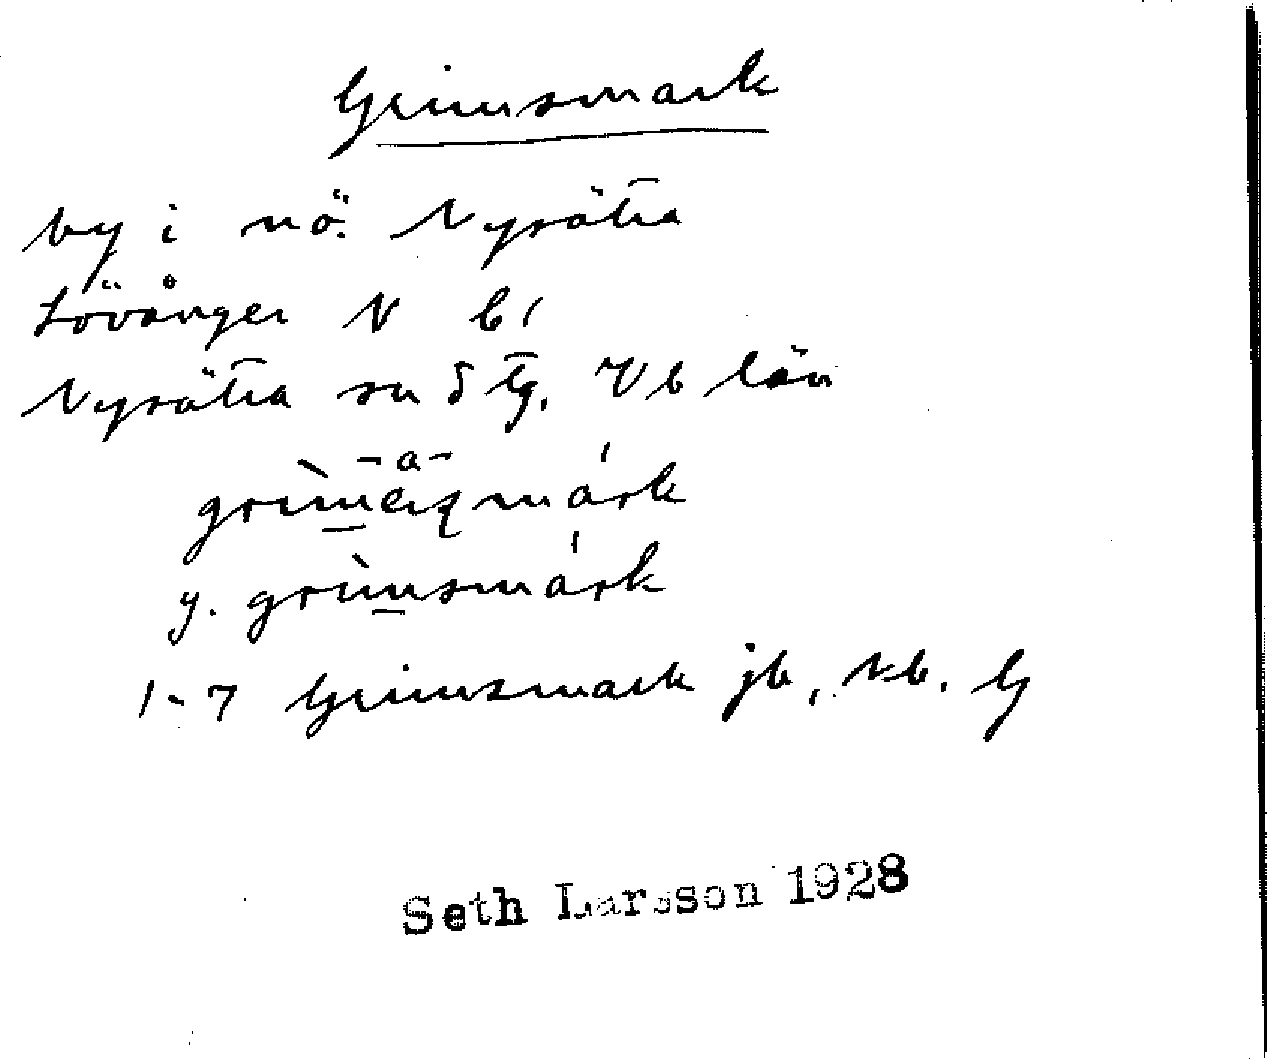 Grimsmark
by i nö. Nysätra
Lövånger N b1
Nysätra sn S tg. Vb län
-a-
grìm márk
y. grìmsmárk
1-7 Grimsmark jb, kb. G
Seth Larsson 1928